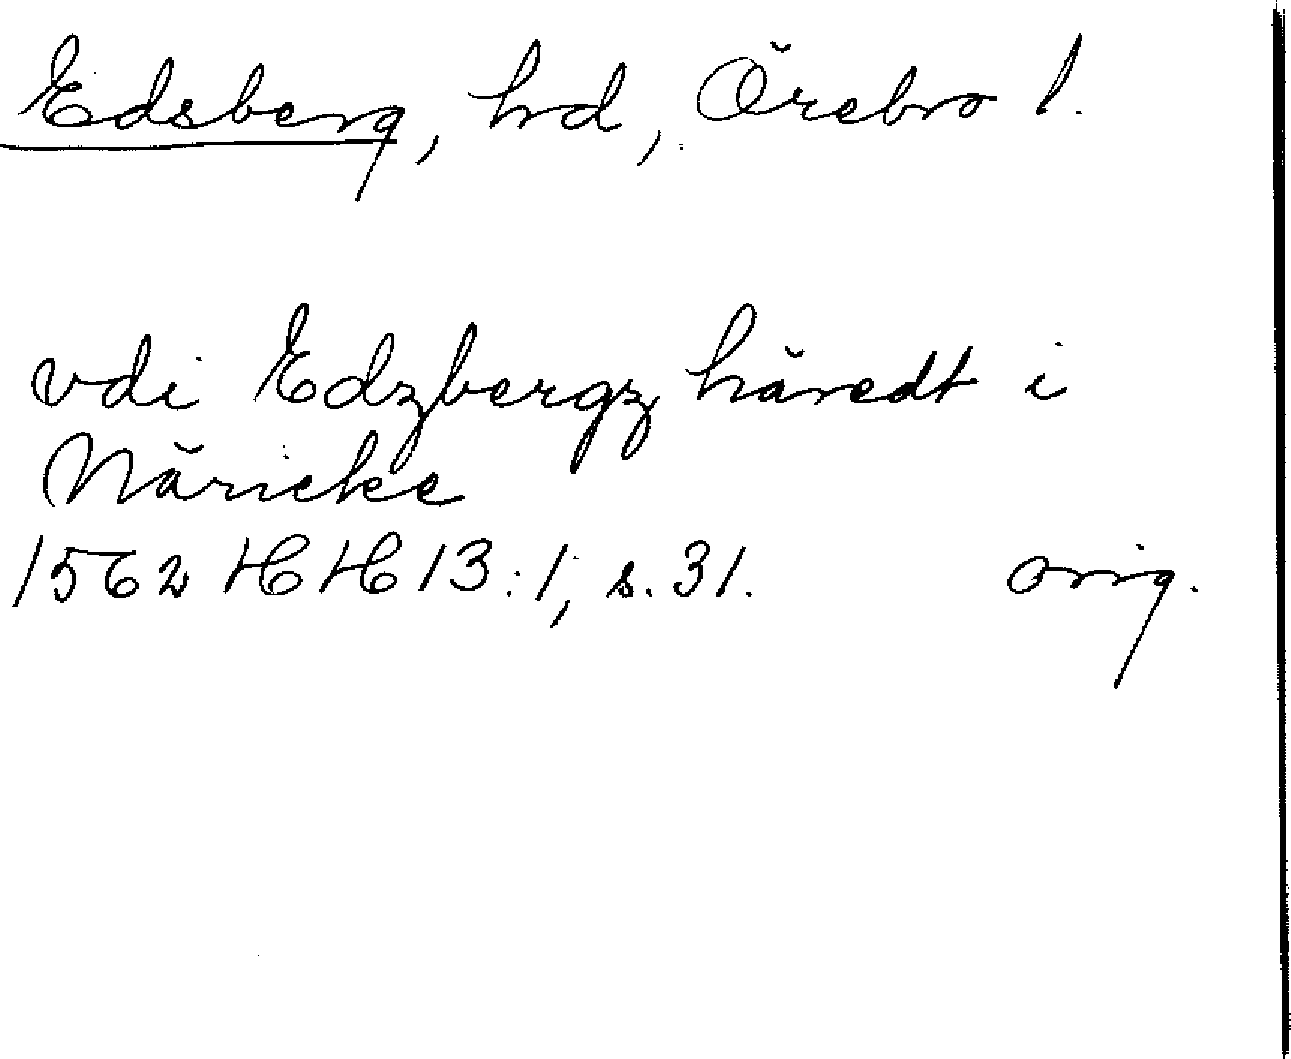 Edsberg, hd, Örebro l.
vdi Edzbergz häredt i
Näricke
1562 HH 13:1, s. 31. orig.